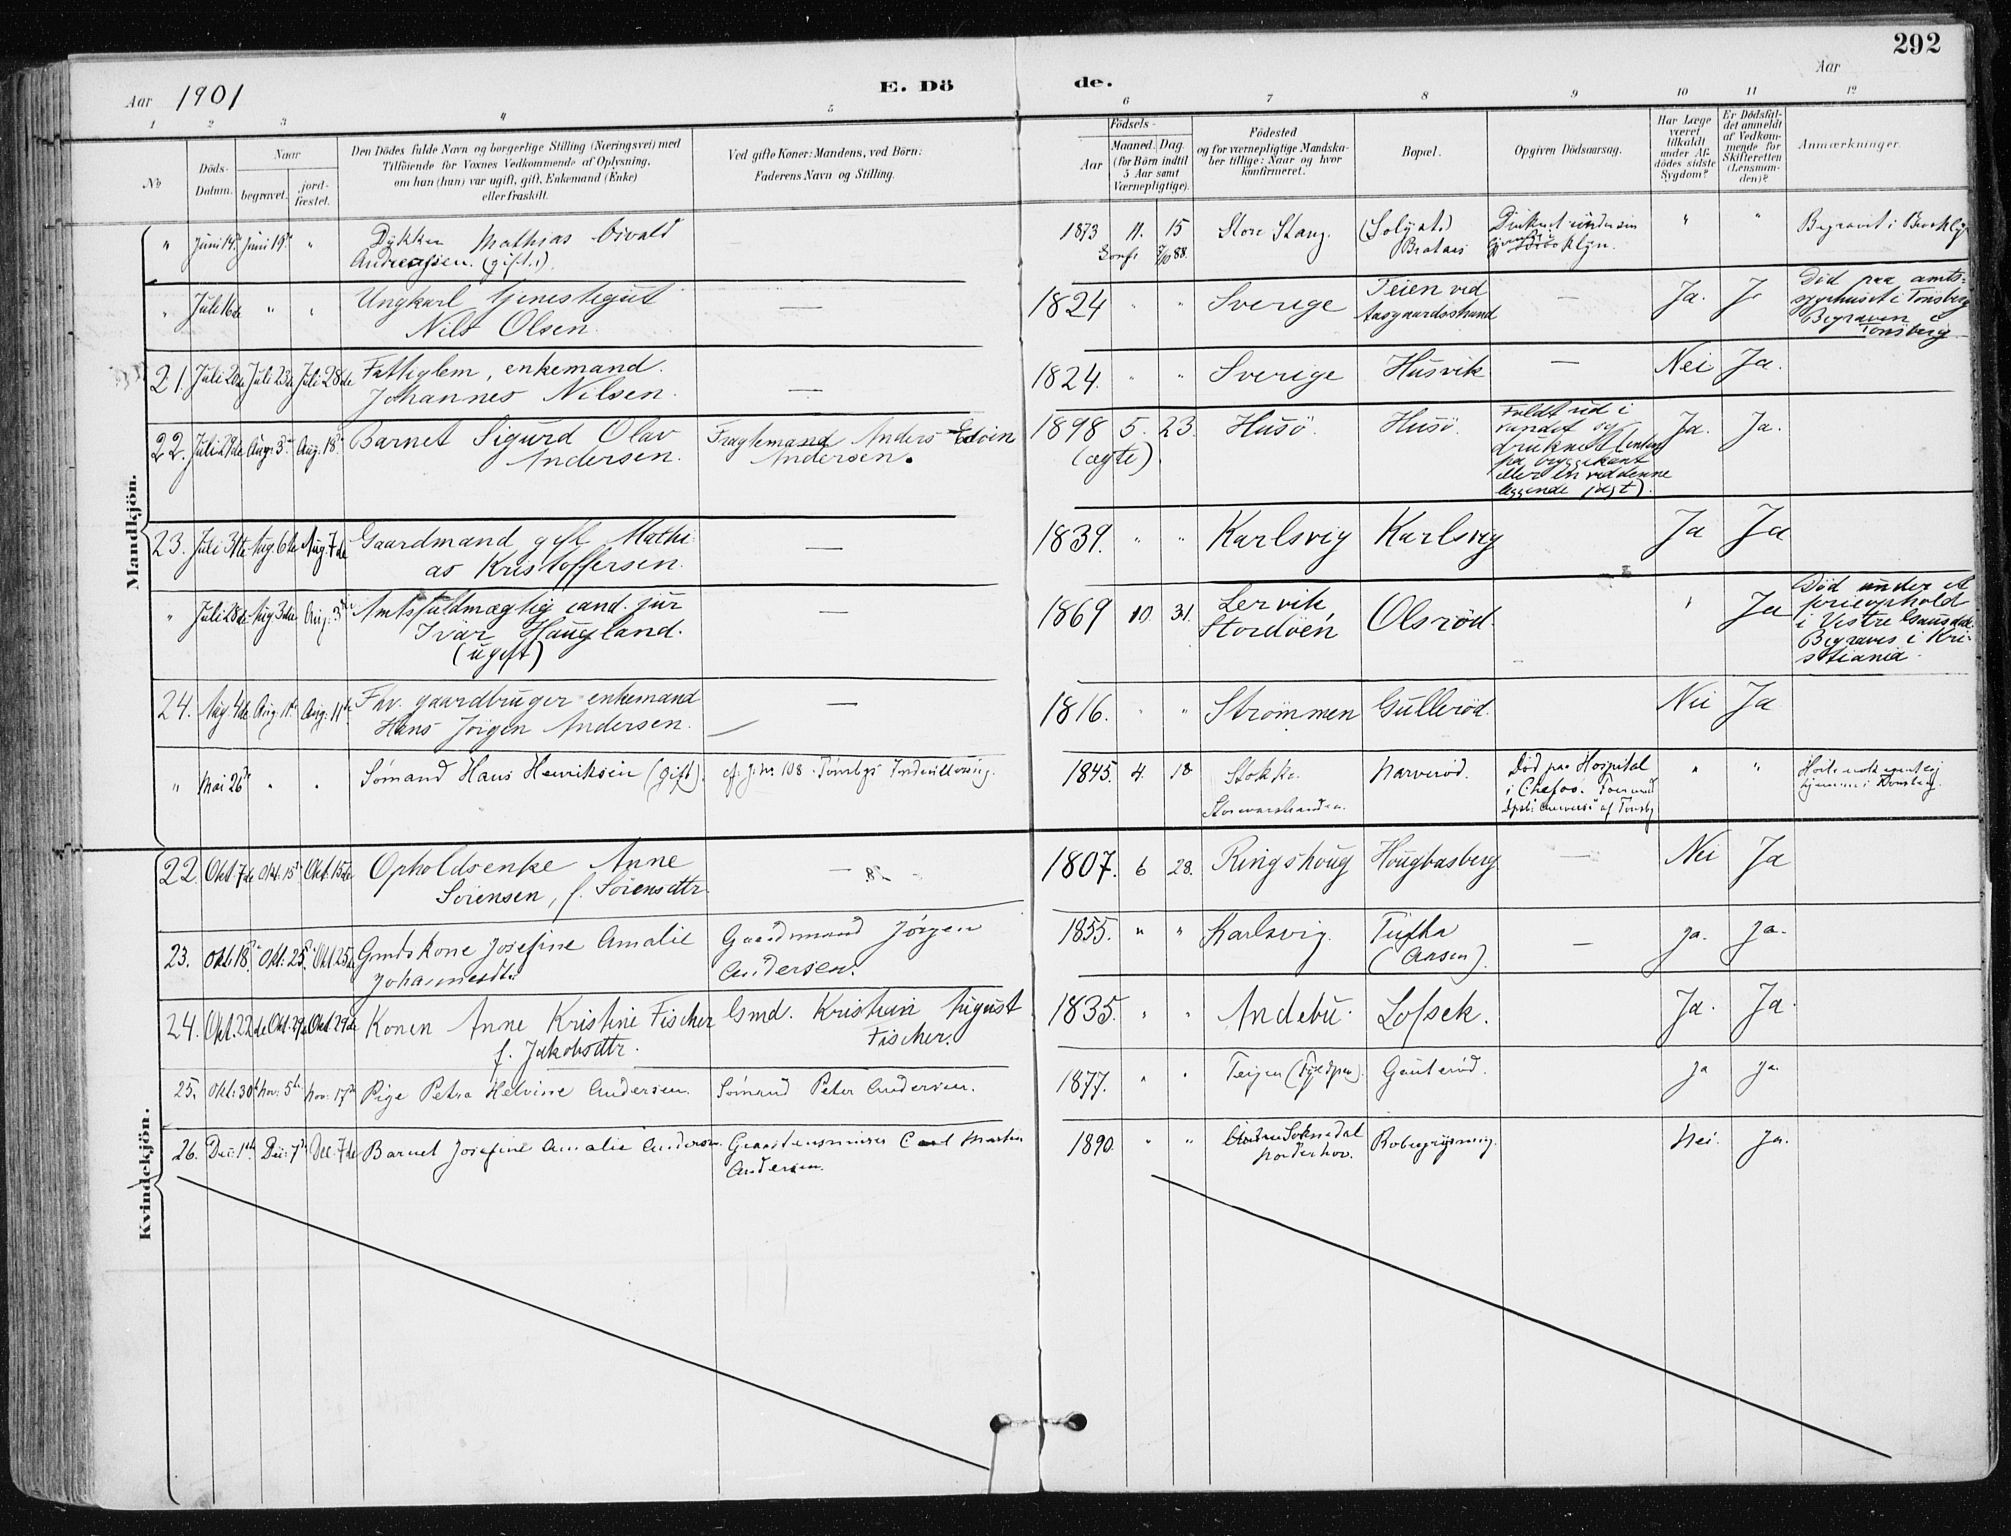 292
Aar 1901
E. Dö
de.
Aar
1 2 3 4 5
6 7 8 9 10 11 12
No
Döds-
Datum.
Naar
begravet.
jord-
fæstet.
Den Dödes fulde Navn og borgerlige Stilling (Næringsvei) med
Tilföiende for Voxnes Vedkommende af Oplysning,
om han (hun) var ugift, gift, Enkemand (Enke)
eller fraskilt.
Ved gifte Koner: Mandens, ved Börn:
Faderens Navn og Stilling.
Födsels-
Aar
Maaned. Dag.
(for Börn indtil
5 Aar samt
Værnepligtige).
Födested
og for værnepligtige Mandska-
ber tillige: Naar og hvor
konfirmeret.
Bopæl.
Opgiven Dödsaarsag.
Har Læge
været
tilkaldt
under Af-
dödes sidste
Sygdom?
Er Dödsfal-
det anmeldt
af Vedkom-
mende for
Skifteretten
(Lensman-
den)?
Anmærkninger.
Mandkjön.
" Juni 14de Juni 19de " Dykker Mathias
Andreassen. (gift.)
1873 11. 15 Store Stang. " " Begravet i Brooklyn
Konf. 88.
" Juli 16de " " Ungkarl
Nils Olsen. —
1824 " " Sverige Teien ved
Aasgaardsstrand — Ja. Ja Död paa amts-
sygehuset i Tönsberg
Begraven i
Tönsberg
21. Juli 20de Juli 23de Juli 28de Fattiglem, enkemand.
Johannes Nilsen. —
1824. " " Sverige Husvik — Nei Ja.
22. Juli 29de Aug. 3de Aug. 18de Barnet Sigurd Olav
Andersen.
Fragtemand Anders Edvin
Andersen.
1898 5. 23. Husö. Husö. Faldt ud i
vandet og
druknet (enten
fra bryggekant
eller en ved denne
liggende jagt). Ja. Ja.
(ægte)
23. Juli 31te Aug 6te Aug. 7de Gaardmand gift Mathi-
as Kristoffersen. —
1839. " " Karlsvig Karlsvig Ja Ja
" Juli 28de Aug 3die Aug. 3die Amtsfuldmægtig cand. jur
Ivar Haugland.
(ugift) —
1869 10. 31. Lervik,
Stordöen Olsröd. " Ja Död under et
ferieophold
i Vestre Gausdal
Begraves i Kri-
stiania.
24. Aug 4de Aug. 11te Aug. 11te Fhv. gaardbruger enkemand
Hans Jörgen Andersen. —
1816. " " Strömmen Gulleröd. Nei Ja
" Mai 26de " " Sömand Hans Henriksen (gift). cf. j. nr. 108
1845. 4. 18 Stokke. Narveröd. Död paa Hospital
i Chefoo. " "
Kvindekjön.
22. Okt. 7de Okt. 15de Okt. 15de Opholdsenke Anne
Sörensen, f. Sörensdtr. —
1807. 6 28. Ringshoug Hougbasberg — Nei Ja
23. Okt. 18de Okt. 25de Okt. 25de Gmdskone Josefine Amalie
Johannesdtr.
Gaardmand Jörgen
Andersen.
1855. " " Karlsvig. Tufta
(Aasen). — ja. ja.
24. Okt. 22de Okt. 29de Okt. 29de Konen Anne Kristine Fischer
f. Jakobsdtr.
Gmd. Kristian August
Fischer.
1835. " " Andebu. Lofsek. Ja. Ja.
25. Okt. 30te Nov. 5te Nov. 17de Pige Petra Helvine Andersen. Sömand Peter Andersen.
1877. " " Teigen Gauteröd. ja ja.
26. Dec. 1ste Dec. 7de Dec. 7de Barnet Josefine Amalie Andersen. Carl Martin
Andersen.
1890. " " Soknedal
Norderhov. Nei. Ja.